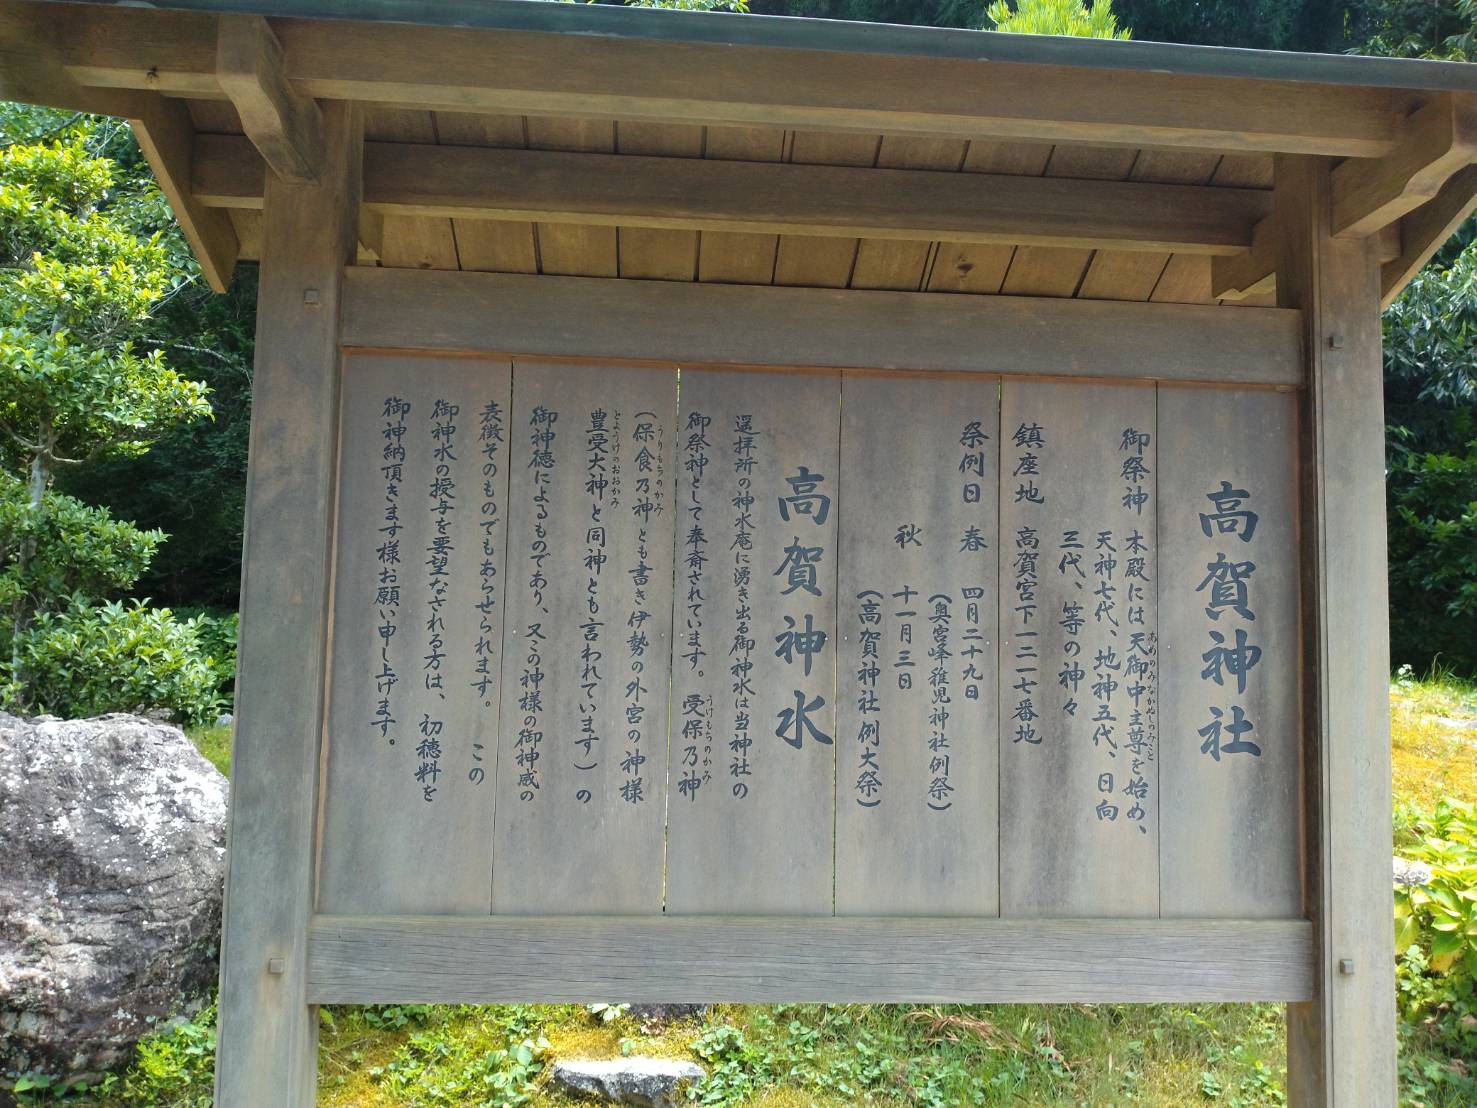 高賀神社
御祭神 本殿には天御中主尊を始め、
あめのみなかぬしのみこと
天神七代、地神五代、日向
三代、等の神々
鎮座地 高賀宮下一二一七番地
祭例日 春 四月二十九日
(奥宮峰稚児神社例祭)
秋 十一月三日
(高賀神社例大祭)
高賀神水
遥拝所の神水庵に湧き出る御神水は当神社の
御祭神として奉斎されています。 受保乃神
うけもちのかみ
(保食乃神 とも書き伊勢の外宮の神様
うりもちのかみ
豊受大神と同神とも言われています)の
とようけのおおかみ
御神徳によるものであり、又この神様の御神威の
表徴そのものでもあらせられます。 この
御神水の授与を要望なされる方は、 初穂料を
御神納頂きます様お願い申し上げます。